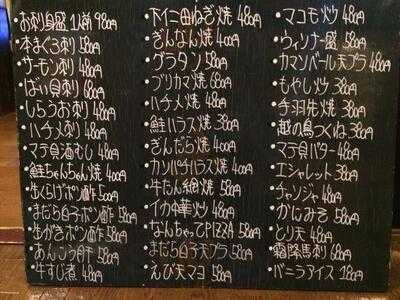 ・お刺身盛 1人前 980円
・本まぐろ刺 580円
・サーモン刺 480円
・ばい貝刺 680円
・しらうお刺 480円
・ハチメ刺 480円
・マテ貝酒むし 480円
・鮭ちゃんちゃん焼 400円
・生くらげポン酢 500円
・まだら白子ポン酢 580円
・生がきポン酢 580円
・あんこう肝 580円
・牛すじ煮 480円
・下仁田ねぎ焼 480円
・ぎんなん焼 400円
・グラタン 580円
・ブリカマ焼 680円
・ハチメ焼 480円
・鮭ハラス焼 380円
・ぎんだら焼 400円
・カンパチハラス焼 400円
・牛たん網焼 580円
・イカ中華炒 480円
・なんちゃってPIZZA 580円
・まだら白子天プラ 580円
・えび天マヨ 580円
・マコモ炒 480円
・ウィンナー盛 580円
・カマンベール天プラ 480円
・もやし炒 380円
・手羽先焼 380円
・越の鳥つくね 380円
・マテ貝バター 480円
・エシャレット 380円
・チャンジャ 480円
・かにみそ 580円
・とり天 480円
・霜降馬刺 680円
・バニラアイス 180円